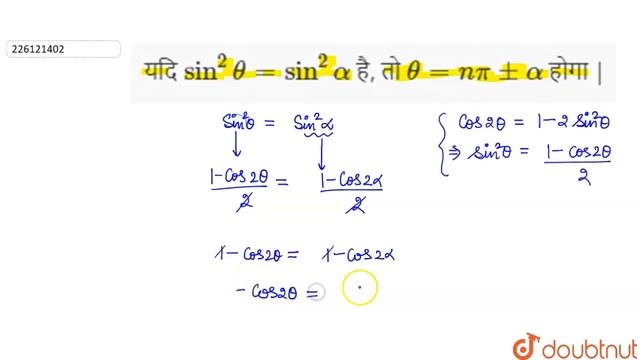 226121402
यदि sin² θ = sin² α है, तो θ = nπ ± α होगा |
sin²θ = sin²α
cos2θ = 1-2 sin²θ
⇒ sin²θ = (1-cos2θ)/2
(1-cos2θ)/2 = (1-cos2α)/2
1-cos2θ = 1-cos2α
-cos2θ =
doubtnut